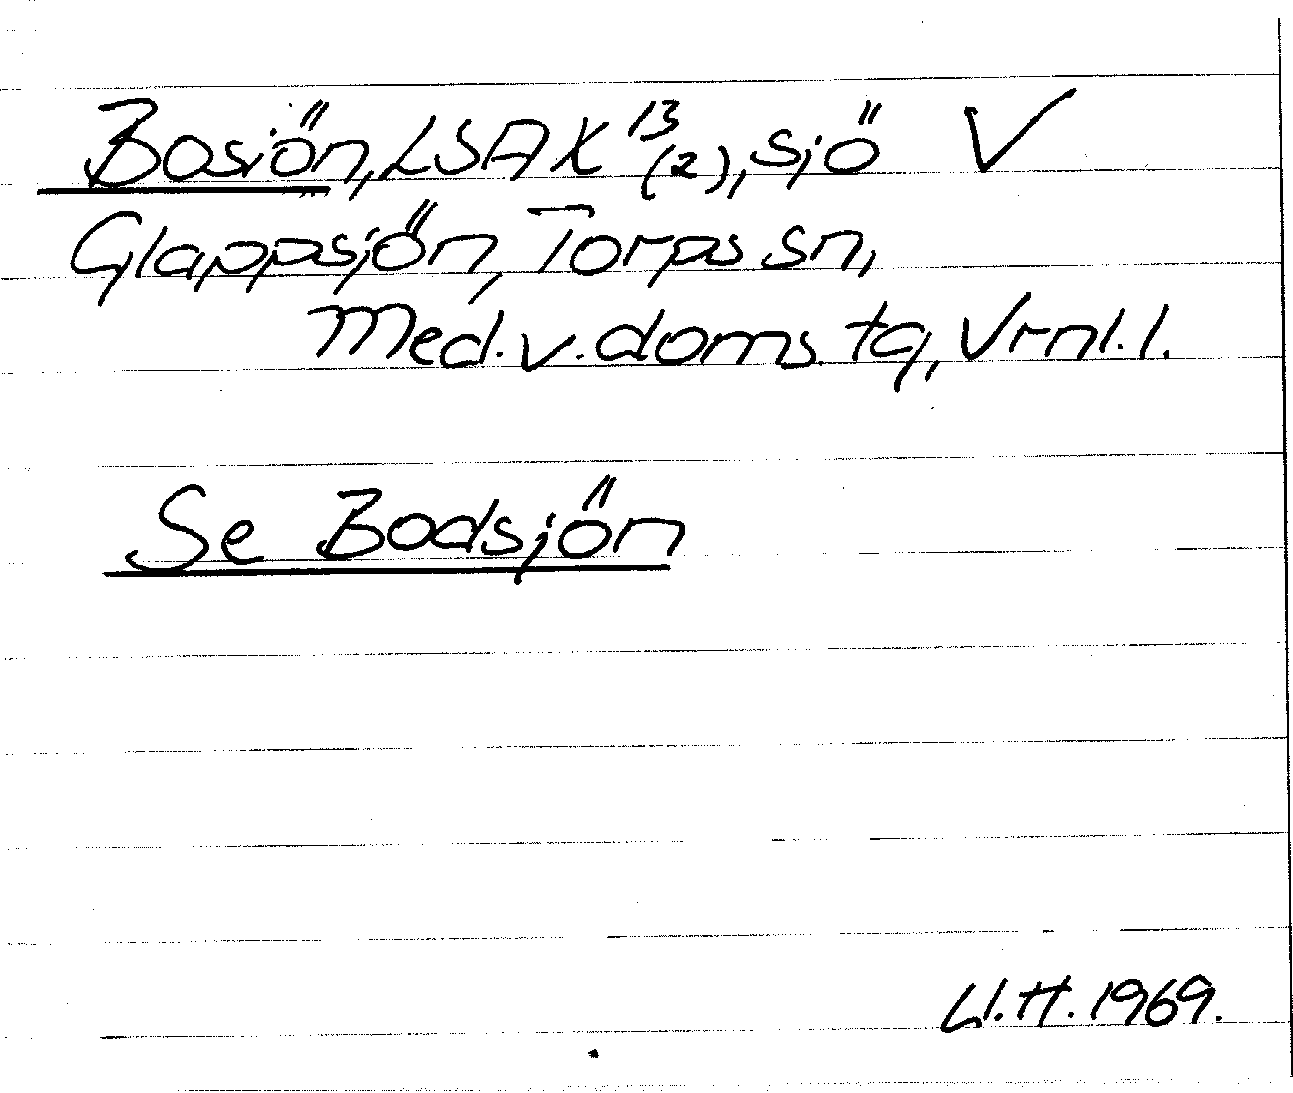 Bosjön, LSA X 13 (2), sjö V
Glappsjön, Torps sn,
Med. v. doms. tg, Vrnl. l.
Se Bodsjön
Ll. H. 1969.